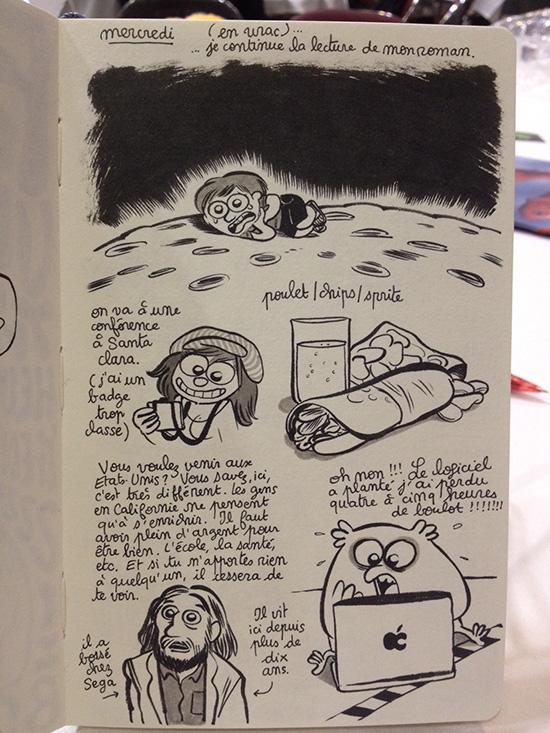 mercredi (en vrac)...
... je continue la lecture de mon roman.
poulet/chips/sprite
on va à une
conférence
à Santa
clara.
(j'ai un
badge
trop
classe)
Vous voulez venir aux
Etats-Unis? Vous savez, ici,
c'est très différent. Les gens
en Californie ne pensent
qu'à s'enrichir. Il faut
avoir plein d'argent pour
être bien. L'école, la santé,
etc. Et si tu n'apportes rien
à quelqu'un, il cessera de
te voir.
oh non!!! Le logiciel
a planté j'ai perdu
quatre à cinq heures
de boulot!!!!!!!
il a
bossé
chez
Sega
Il vit
ici depuis
plus de
dix
ans.